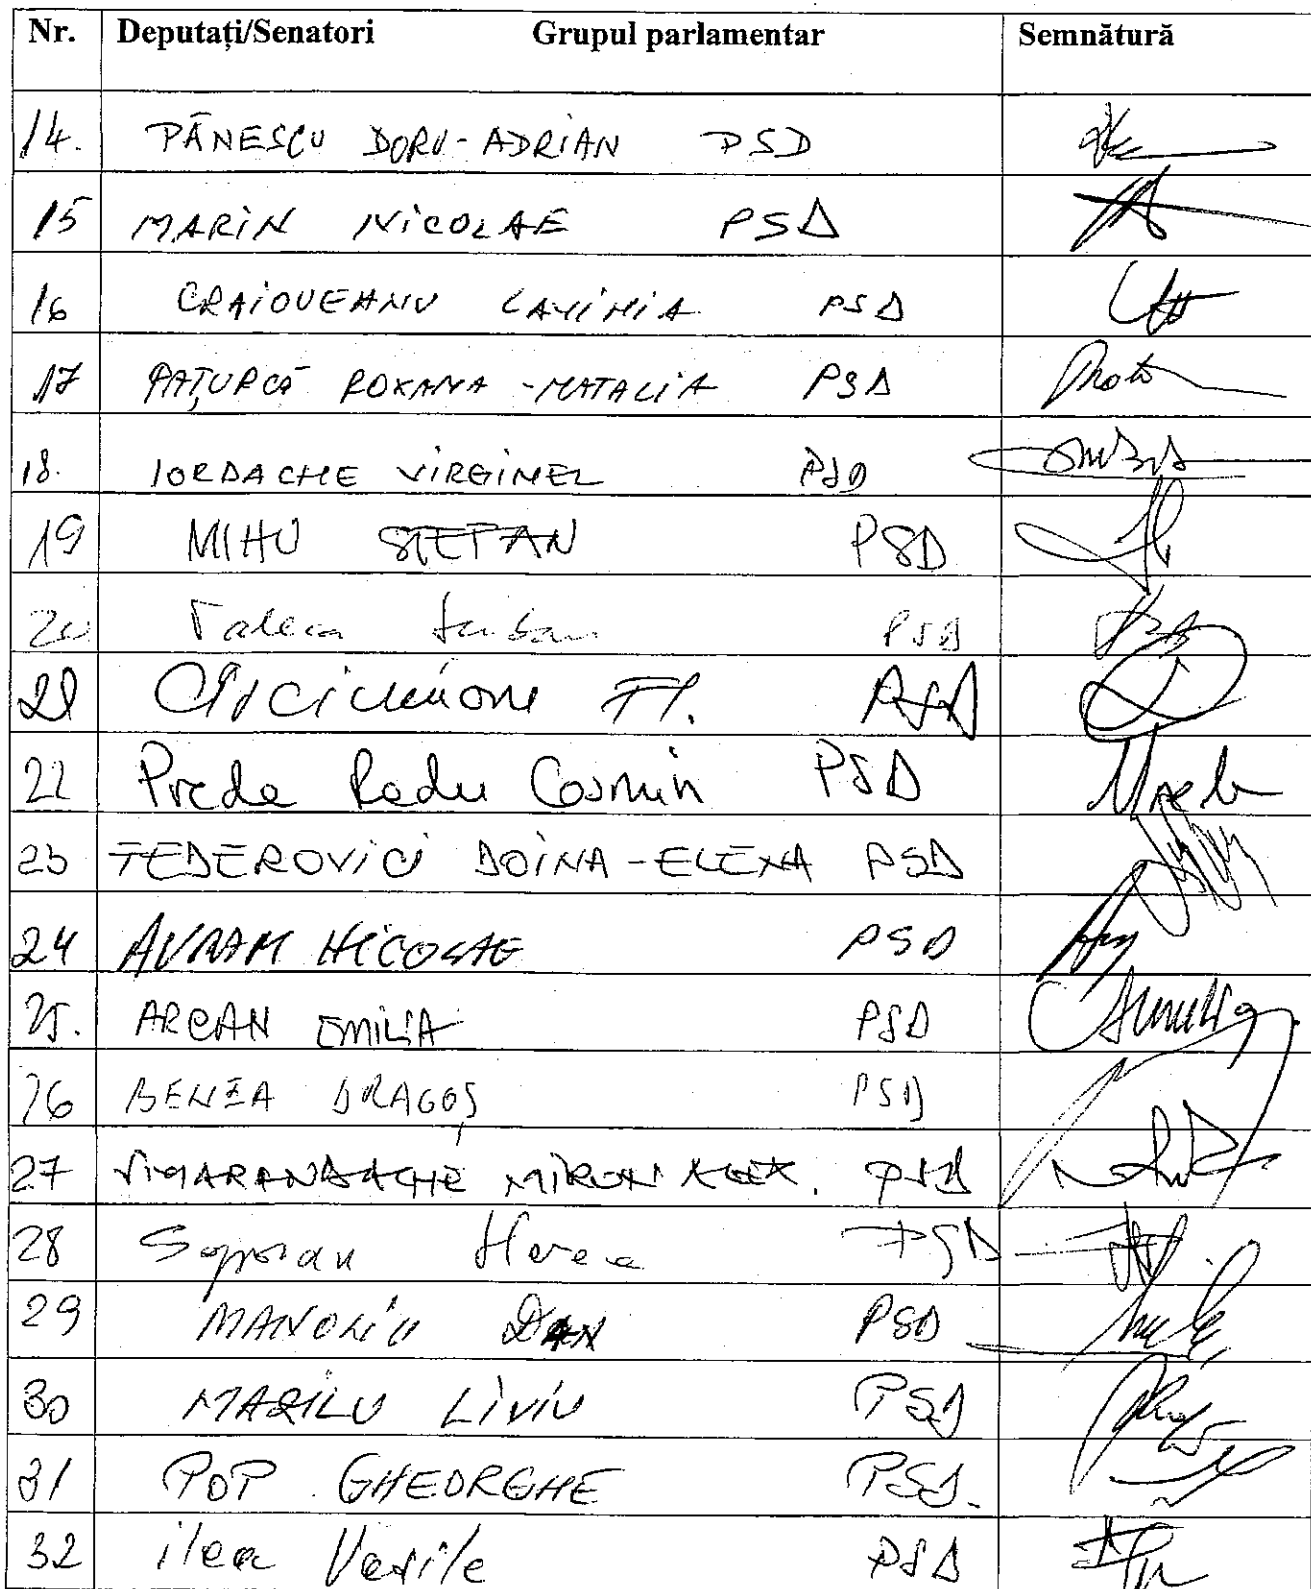 Nr. Deputați/Senatori Grupul parlamentar Semnătură
14. PĂNESCU DORU-ADRIAN PSD
15 MARIN NICOLAE PSD
16 CRAIOVEANU LAVINIA PSD
17 PAȚURCĂ ROXANA-NATALIA PSD
18. IORDACHE VIRGINEL PSD
19 MIHU ȘTEFAN PSD
20 PSD
21 PSD
22 Preda Radu Cosmin PSD
23 FEDEROVICI DOINA-ELENA PSD
24 AVRAM NICOLAE PSD
25. ARCAN EMILIA PSD
26 BENEA DRAGOȘ PSD
27 SMARANDACHE MIRON ALEX. PSD
28 Soporan PSD
29 MANOLIU DAN PSD
30 MARILU LIVIU PSD
31 POP GHEORGHE PSD.
32 ilea Vasile PSD